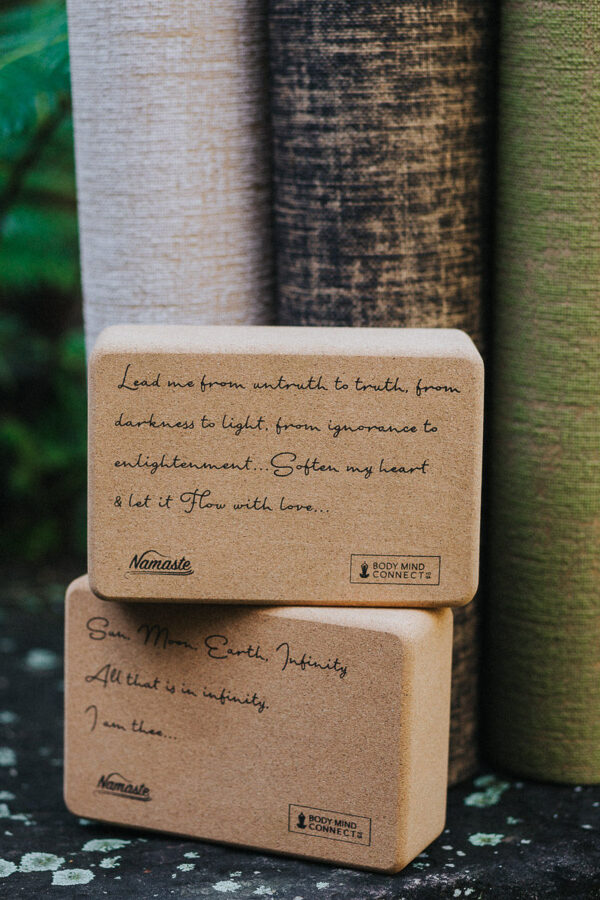 Lead me from untruth to truth, from
darkness to light, from ignorance to
enlightenment...Soften my heart
& let it Flow with love...
Namaste
BODY MIND
CONNECT
Sun, Moon, Earth, Infinity
All that is in infinity.
I am thee...
Namaste
BODY MIND
CONNECT